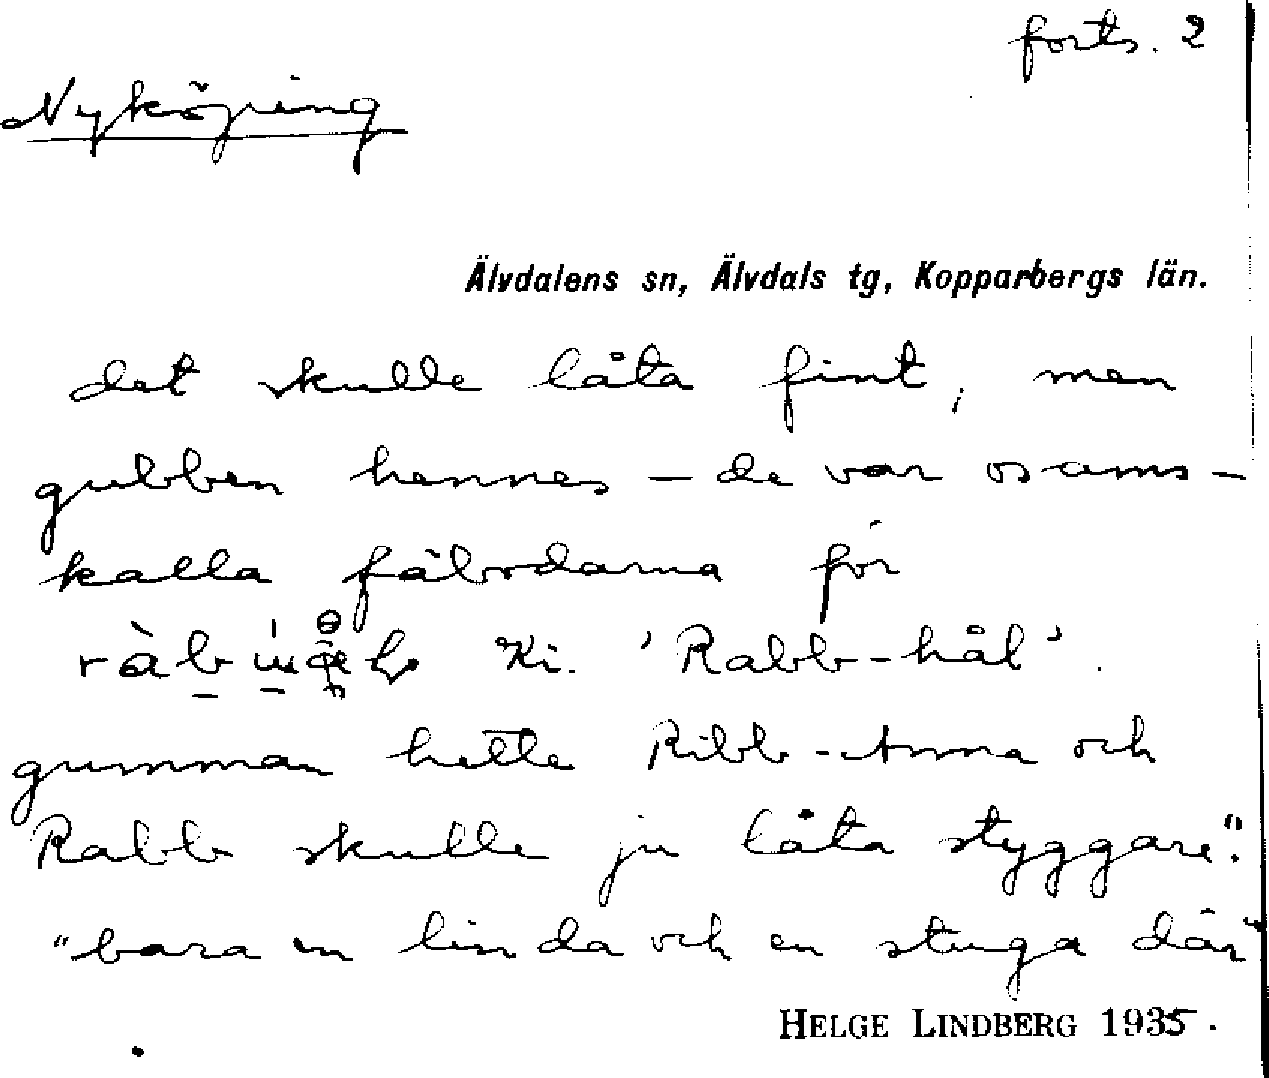 forts. 2
Nyköping
Älvdalens sn, Älvdals tg, Kopparbergs län.
det skulle låta fint, men
gubben hennes – de var osams –
kalla fäbodarna för
Ki. 'Rabb-hål'.
gumman hette Ribb-Anna och
Rabb skulle ju låta styggare".
"bara en linda och en stuga där"
HELGE LINDBERG 1935.